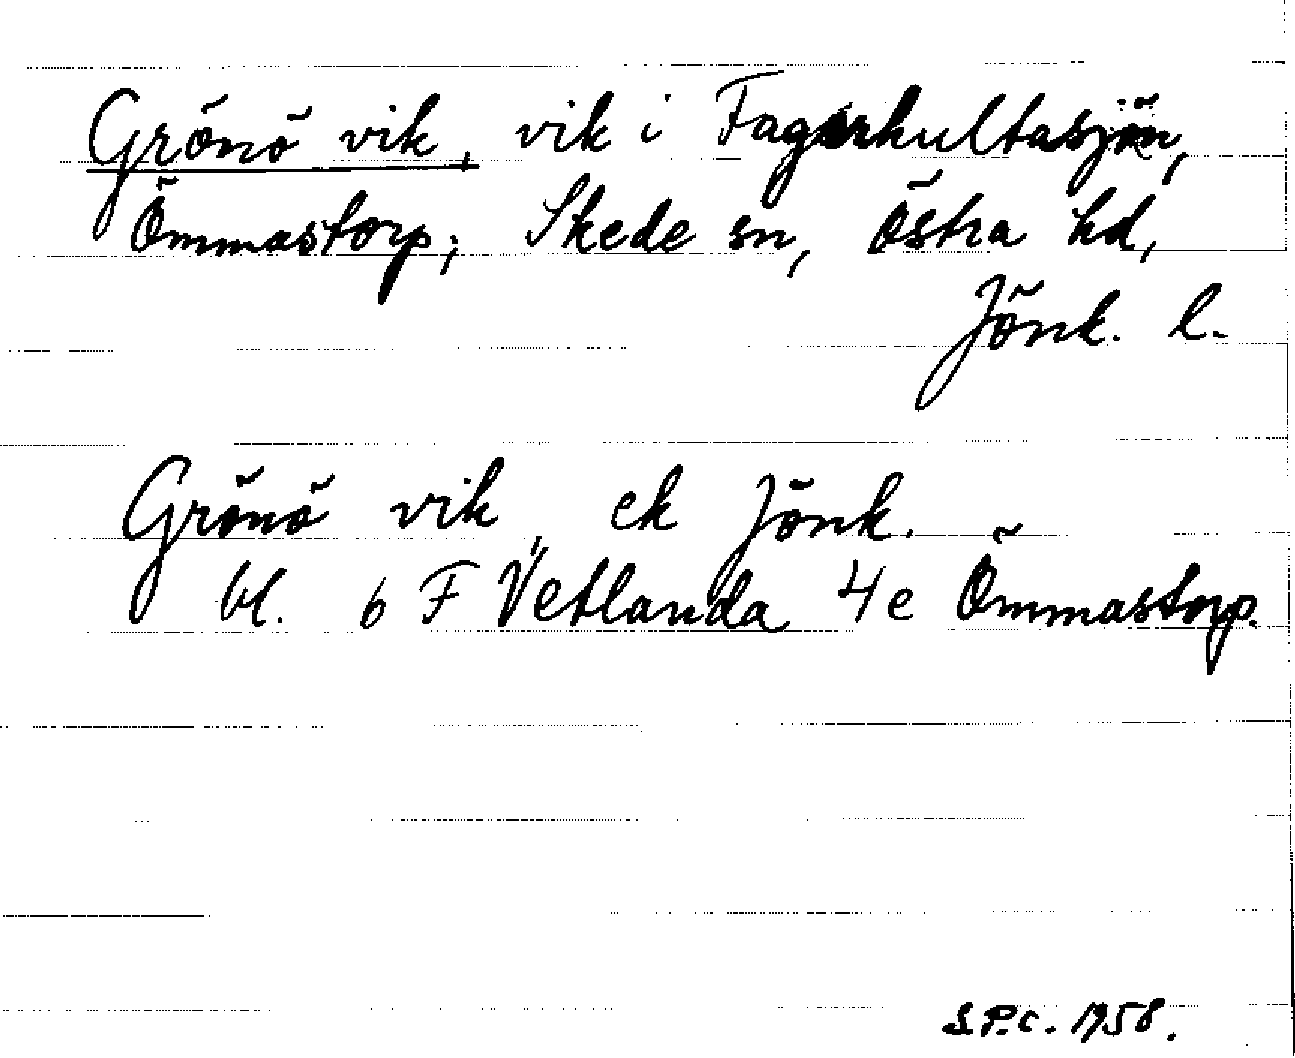 Grönö vik, vik i Fagerhultasjön,
Ömmastorp, Skede sn, Östra hd,
Jönk. l.
Grönö vik, ek Jönk.
bl. 6 F Vetlanda 4e Ömmastorp.
S.P.c. 1958.